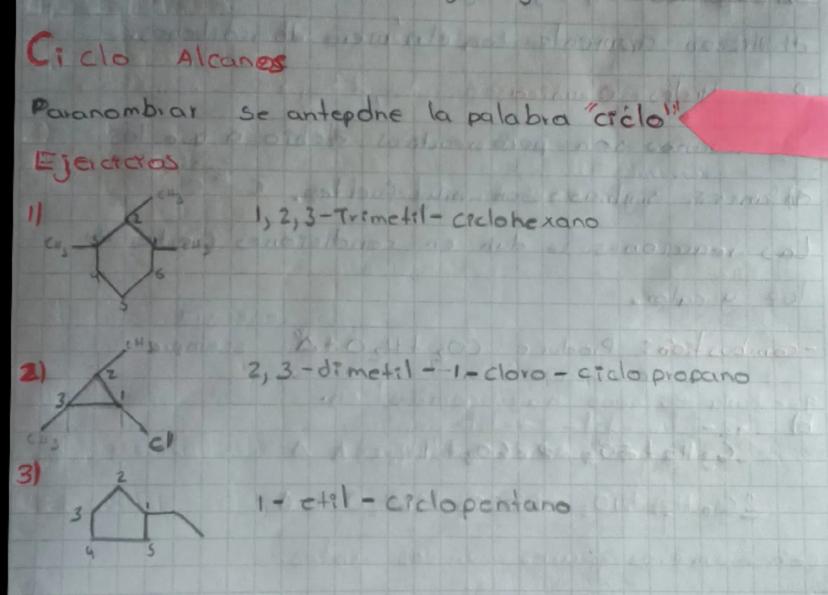 Ciclo Alcanos
Paranombrar se antepone la palabra "ciclo"
Ejercicios
1) 1, 2, 3-Trimetil-ciclohexano
CH3
2
CH3 3 1 CH3
4 6
5
2) 2, 3-dimetil-1-cloro-ciclopropano
CH3
2
3 1
CH3 Cl
3) 1-etil-ciclopentano
2
3 1
4 5